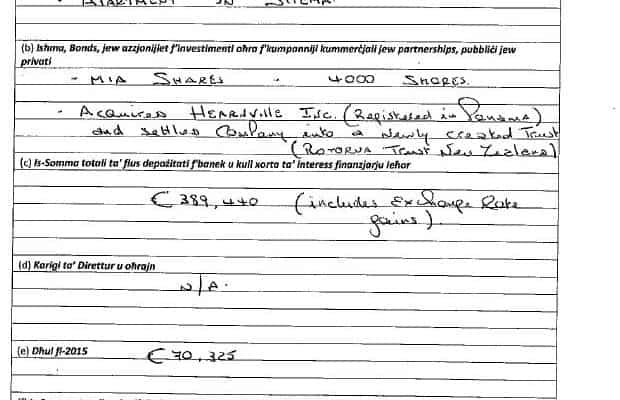 - APARTMENT IN SLIEMA.
(b) Ishma, Bonds, jew azzjonijiet f'investimenti ohra f'kumpanniji kummerċjali jew partnerships, pubbliċi jew
privati
- MIA SHARES - 4000 SHARES.
- Acquired HEARNVILLE Inc. (Registered in Panama)
and settled Company into a Newly created Trust
(ROTORUA Trust New Zealand)
(c) Is-Somma totali ta' flus depożitati f'banek u kull xorta ta' interess finanzjarju iehor
€ 389,440 (includes Exchange Rate
gains).
(d) Karigi ta' Direttur u ohrajn
N/A.
(e) Dhul fl-2015 € 70,325